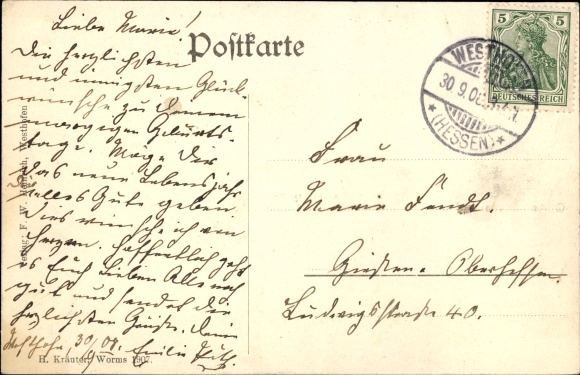 Liebe Marie!
Die herzlichsten
und innigsten Glück-
wünsche zu Deinem
morgigen Geburts-
tage. Möge Dir
das neue Lebensjahr
alles Gute geben.
Dies wünsche ich von
Herzen. Hoffentlich geht
es Euch Lieben Alle noch
gut und sendet die
herzlichsten Grüße. Deine
Westhofen, 30/9. 08. Emilie
Postkarte
5 5
DEUTSCHES REICH
WESTHOFEN
30 9.08
★ (HESSEN) ★
Frau
Marie Fendt
Gießen. Oberhessen.
Ludwigsstraße 40.
Verlag: F. W. Westhofen
H. Kräuter, Worms 1907.